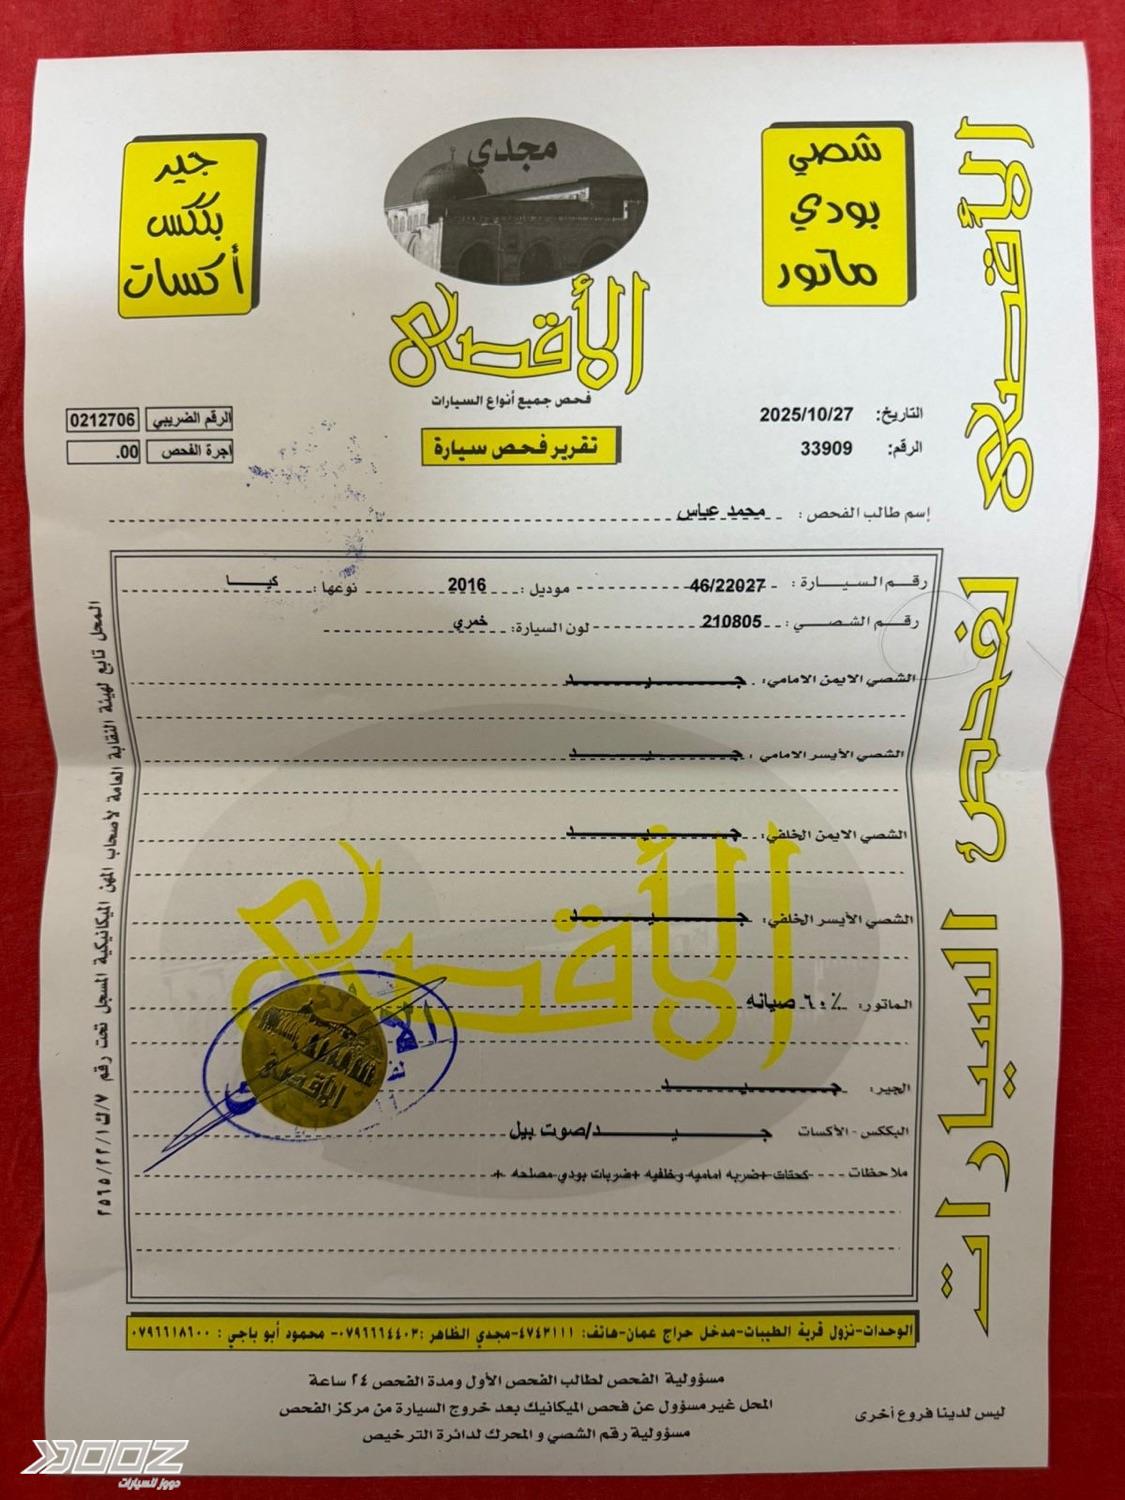 شصي
بودي
ماتور
مجدي
جير
بككس
أكسات
الأقصى
فحص جميع أنواع السيارات
تقرير فحص سيارة
التاريخ: 2025/10/27
الرقم: 33909
الرقم الضريبي 0212706
اجرة الفحص .00
إسم طالب الفحص: محمد عباس
رقم السيارة: 46/22027 موديل: 2016 نوعها: كيا
رقم الشصي: 210805 لون السيارة: خمري
الشصي الايمن الامامي: جيد
الشصي الأيسر الامامي: جيد
الشصي الايمن الخلفي: جيد
الشصي الأيسر الخلفي: جيد
الماتور: ٦٠٪ صيانه
الجير: جيد
البككس - الأكسات جيد/صوت بيل
ملاحظات كحتات +ضربه اماميه وخلفيه +ضربات بودي مصلحه +
الأقصى
الأقصى
الوحدات-نزول قرية الطيبات-مدخل حراج عمان-هاتف: ٤٧٤٣١١١-مجدي الظاهر: ٠٧٩٦٦٦٤٤٠٣- محمود أبو باجي: ٠٧٩٦٦١٨٦٠٠
مسؤولية الفحص لطالب الفحص الأول ومدة الفحص ٢٤ ساعة
المحل غير مسؤول عن فحص الميكانيك بعد خروج السيارة من مركز الفحص
مسؤولية رقم الشصي و المحرك لدائرة الترخيص
ليس لدينا فروع أخرى
الأقصى لفحص السيارات
المحل تابع لهيئة النقابة العامة لأصحاب المهن الميكانيكية المسجل تحت رقم ٧/ك/٢٢/١/٢٥٦٥
DOOZ
دووز للسيارات